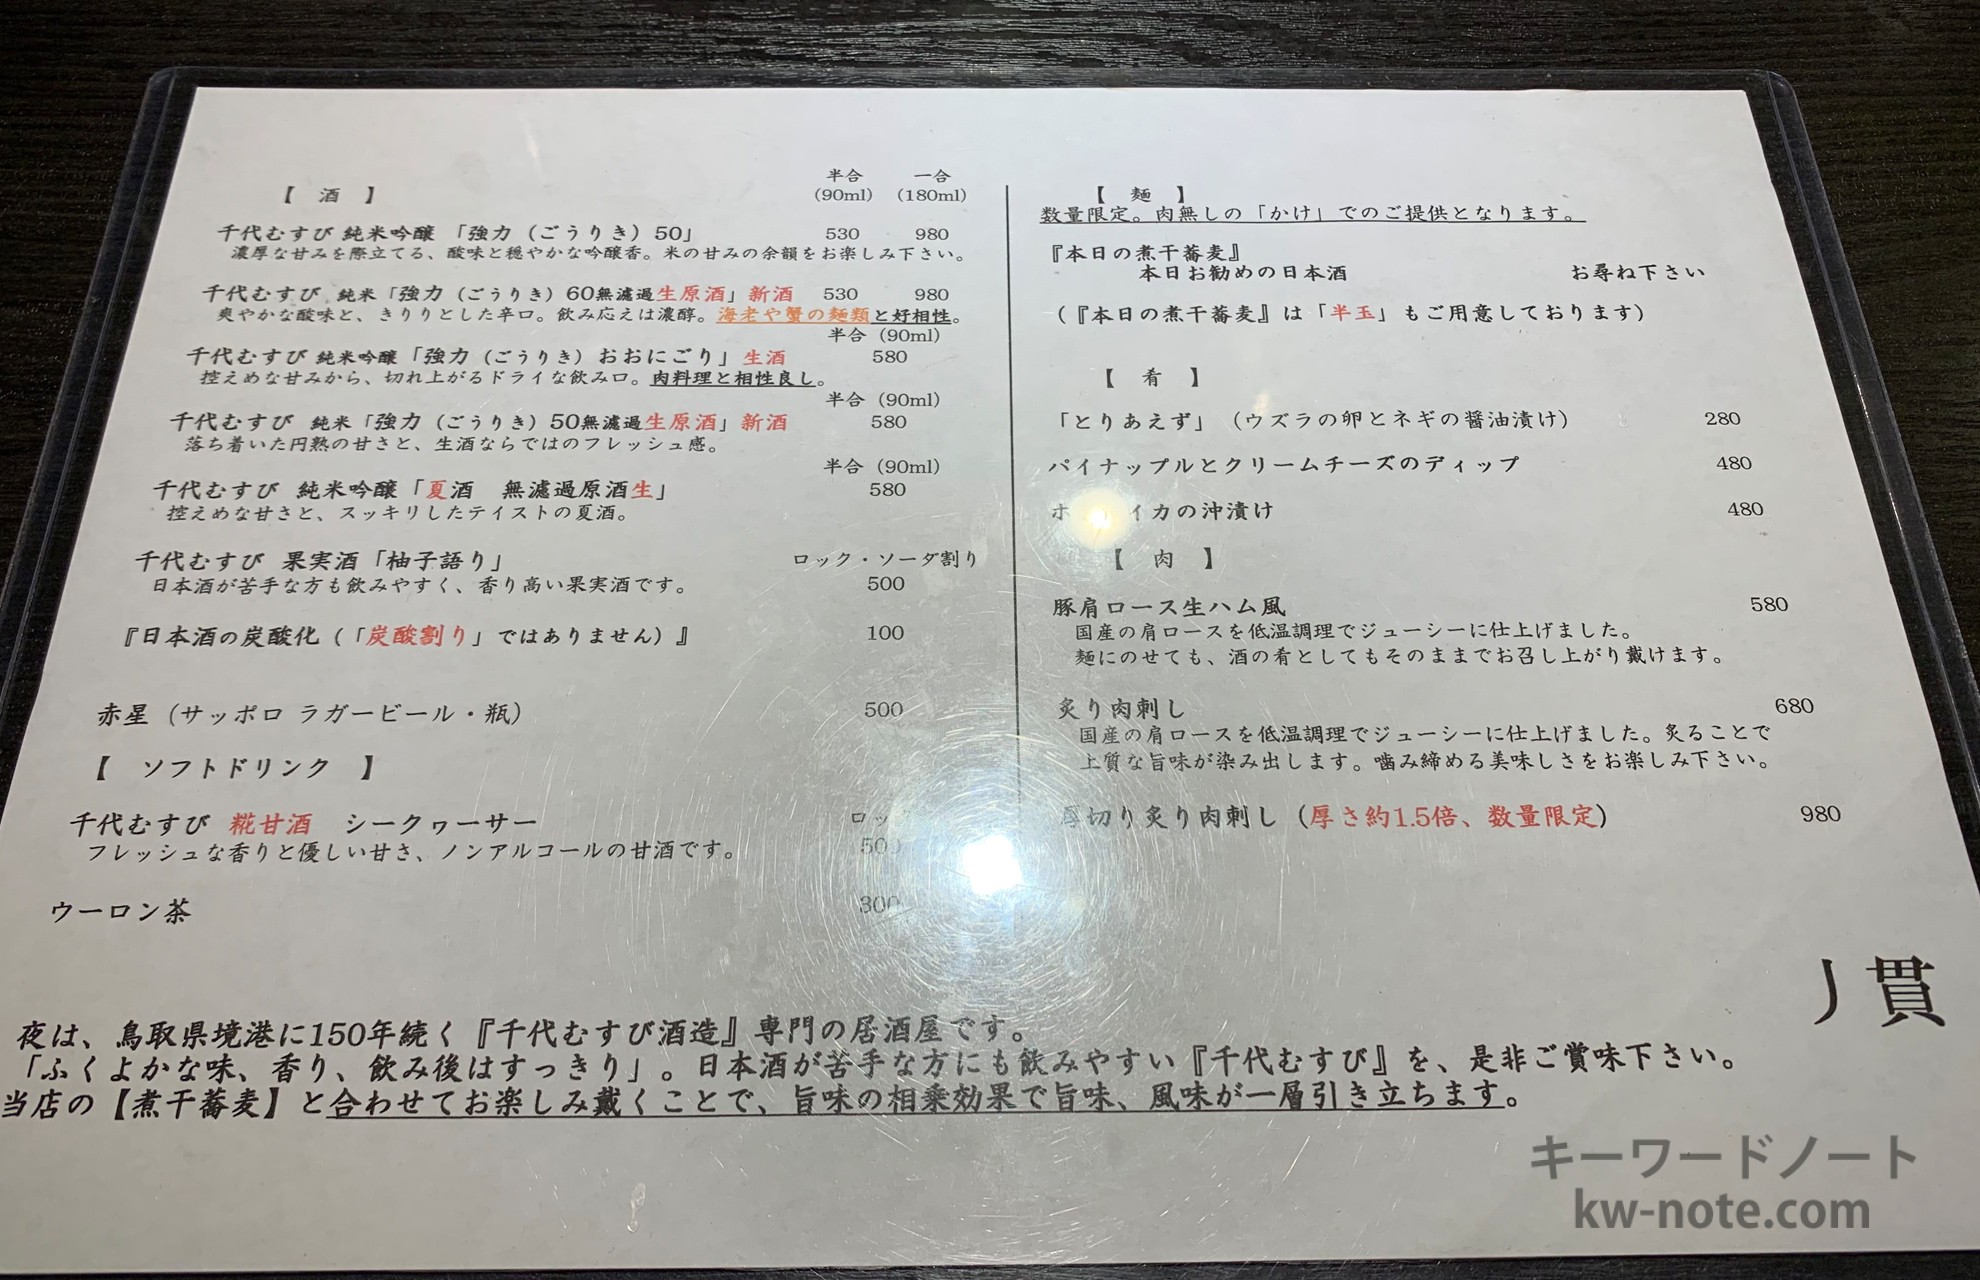 【 酒 】 半合 一合
(90ml) (180ml)
千代むすび 純米吟醸 「強力（ごうりき）50」 530 980
濃厚な甘みを際立てる、酸味と穏やかな吟醸香。米の甘みの余韻をお楽しみ下さい。
千代むすび 純米「強力（ごうりき）60無濾過生原酒」新酒 530 980
爽やかな酸味と、きりりとした辛口。飲み応えは濃醇。海老や蟹の麺類と好相性。
半合（90ml）
千代むすび 純米吟醸「強力（ごうりき）おおにごり」生酒 580
控えめな甘みから、切れ上がるドライな飲み口。肉料理と相性良し。
半合（90ml）
千代むすび 純米「強力（ごうりき）50無濾過生原酒」新酒 580
落ち着いた円熟の甘さと、生酒ならではのフレッシュ感。
半合（90ml）
千代むすび 純米吟醸「夏酒 無濾過原酒生」 580
控えめな甘さと、スッキリしたテイストの夏酒。
千代むすび 果実酒「柚子語り」 ロック・ソーダ割り
日本酒が苦手な方も飲みやすく、香り高い果実酒です。 500
『日本酒の炭酸化（「炭酸割り」ではありません）』 100
赤星（サッポロ ラガービール・瓶） 500
【 ソフトドリンク 】
千代むすび 糀甘酒 シークヮーサー
フレッシュな香りと優しい甘さ、ノンアルコールの甘酒です。 500
ウーロン茶 300
【 麺 】
数量限定。肉無しの「かけ」でのご提供となります。
『本日の煮干蕎麦』
本日お勧めの日本酒 お尋ね下さい
（『本日の煮干蕎麦』は「半玉」もご用意しております）
【 肴 】
「とりあえず」（ウズラの卵とネギの醤油漬け） 280
パイナップルとクリームチーズのディップ 480
イカの沖漬け 480
【 肉 】
豚肩ロース生ハム風 580
国産の肩ロースを低温調理でジューシーに仕上げました。
麺にのせても、酒の肴としてもそのままでお召し上がり戴けます。
炙り肉刺し 680
国産の肩ロースを低温調理でジューシーに仕上げました。炙ることで
上質な旨味が染み出します。噛み締める美味しさをお楽しみ下さい。
厚切り炙り肉刺し（厚さ約1.5倍、数量限定） 980
丿貫
夜は、鳥取県境港に150年続く『千代むすび酒造』専門の居酒屋です。
「ふくよかな味、香り、飲み後はすっきり」。日本酒が苦手な方にも飲みやすい『千代むすび』を、是非ご賞味下さい。
当店の【煮干蕎麦】と合わせてお楽しみ戴くことで、旨味の相乗効果で旨味、風味が一層引き立ちます。
キーワードノート
kw-note.com